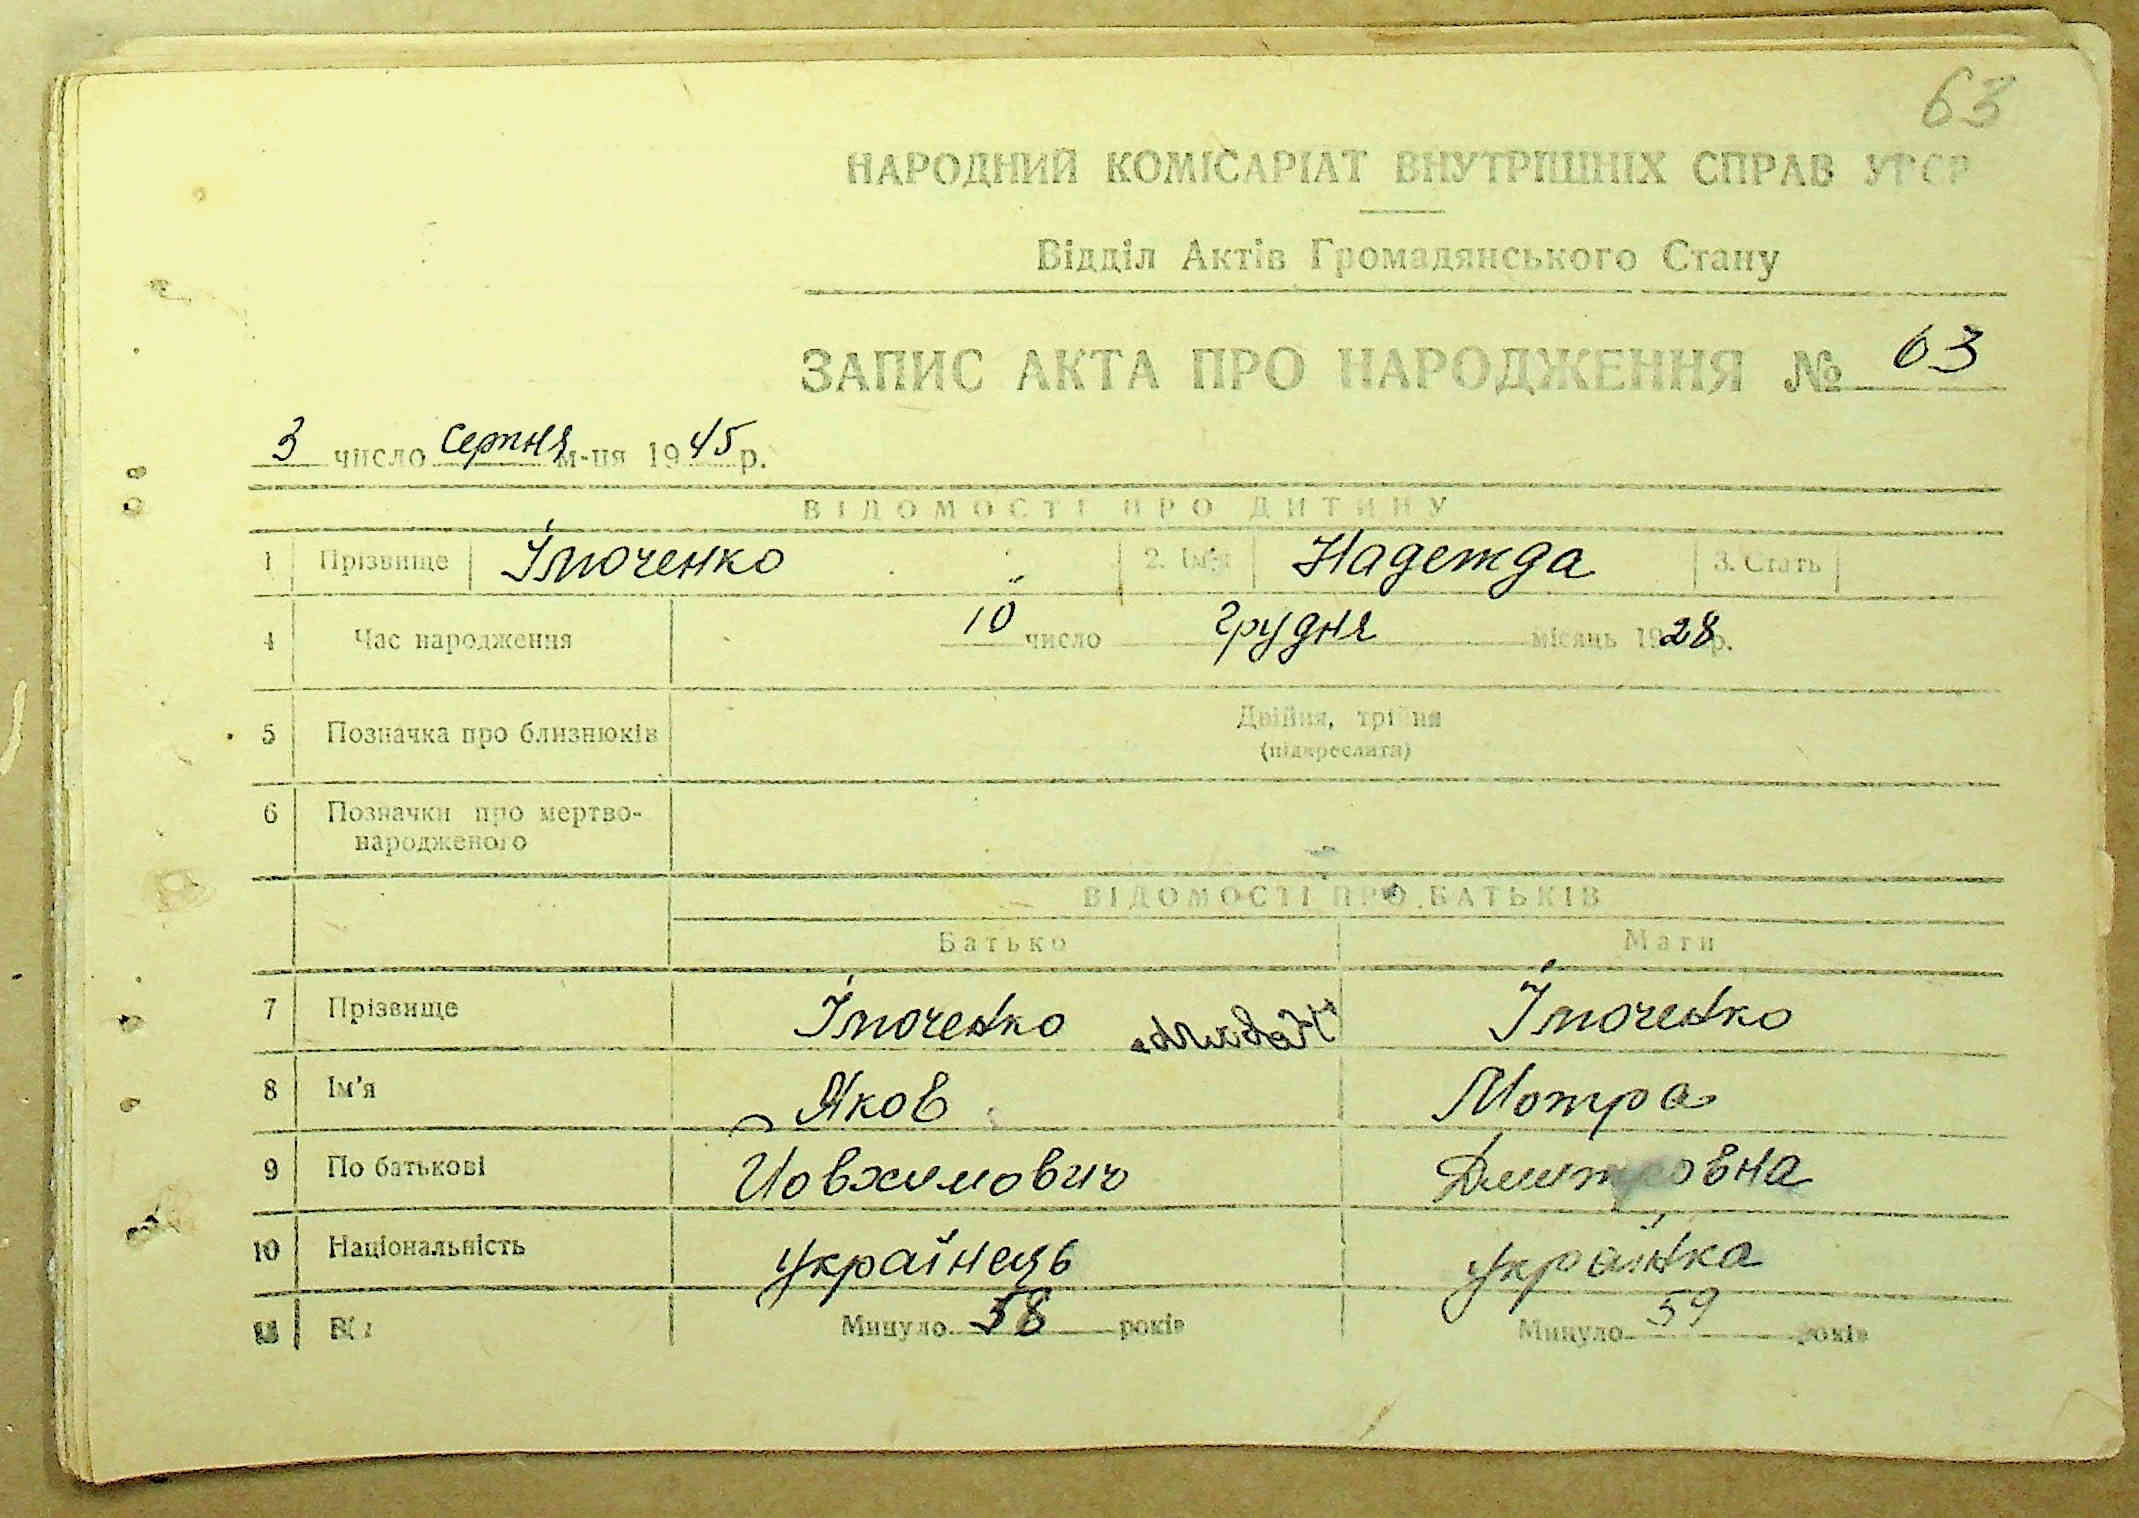 63
НАРОДНИЙ КОМІСАРІАТ ВНУТРІШНІХ СПРАВ УРСР
Відділ Актів Громадянського Стану
ЗАПИС АКТА ПРО НАРОДЖЕННЯ № 63
3 число серпня м-ця 1945 р.
ВІДОМОСТІ ПРО ДИТИНУ
1 Прізвище Іточенко 2. Ім'я Надежда 3. Стать
4 Час народження 10 число грудня місяць 1928 р.
5 Позначка про близнюків Двійня, трійня
(підкреслити)
6 Позначки про мертво-
народженого
ВІДОМОСТІ ПРО БАТЬКІВ
Батько Мати
7 Прізвище Іточенко Іточенко
8 Ім'я Яков Мотра
9 По батькові Йовхимович Дмитровна
10 Національність українець українка
11 Вік Минуло 58 років Минуло 59 років